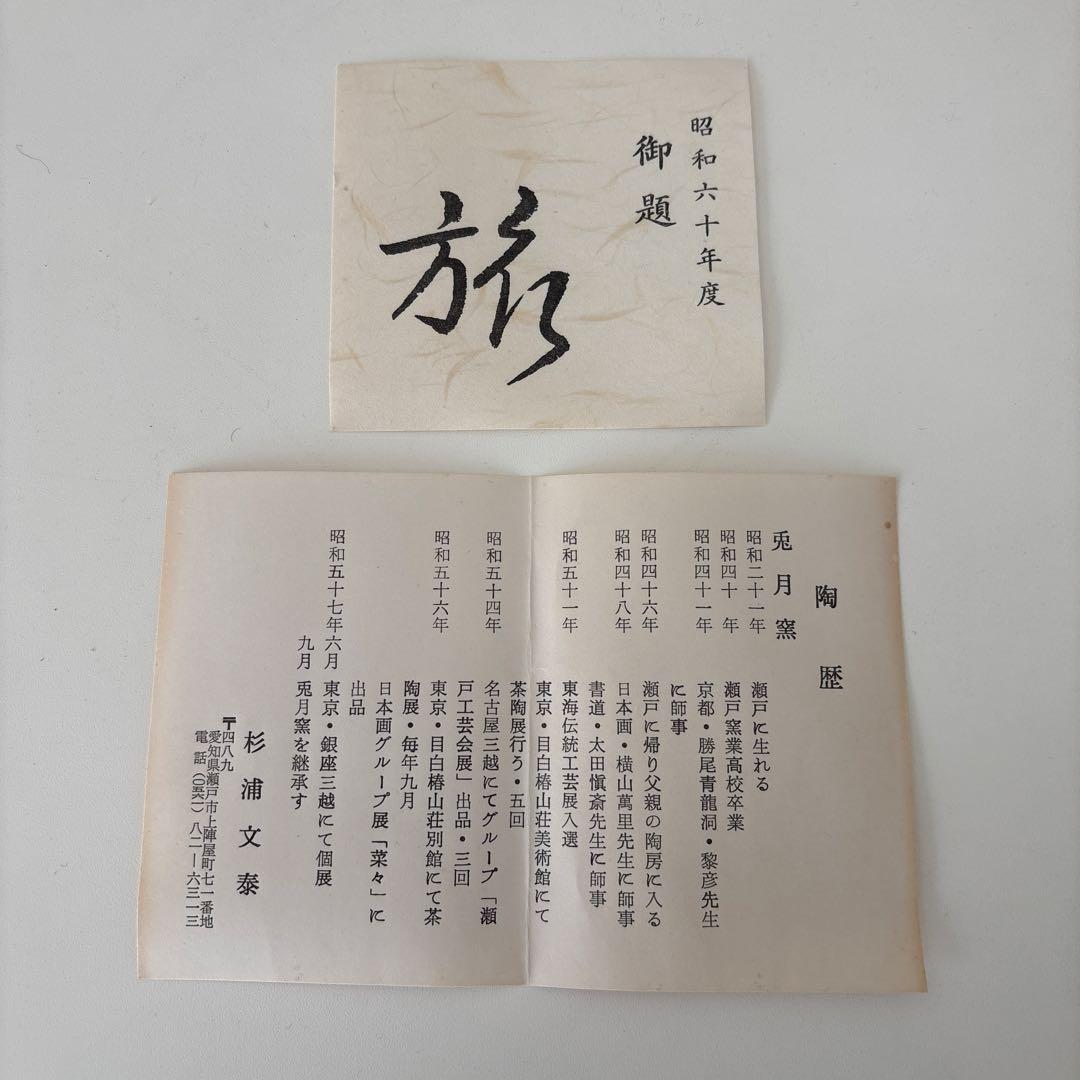 昭和六十年度
御題
旅
陶歴
兎月窯
昭和二十一年 瀬戸に生れる
昭和四十年 瀬戸窯業高校卒業
昭和四十一年 京都・勝尾青龍洞・黎彦先生
に師事
昭和四十六年 瀬戸に帰り父親の陶房に入る
昭和四十八年 日本画・横山萬里先生に師事
書道・太田愼斎先生に師事
昭和五十一年 東海伝統工芸展入選
東京・目白椿山荘美術館にて
茶陶展行う・五回
昭和五十四年 名古屋三越にてグループ「瀬
戸工芸会展」出品・三回
昭和五十六年 東京・目白椿山荘別館にて茶
陶展・毎年九月
日本画グループ展「菜々」に
出品
昭和五十七年六月 東京・銀座三越にて個展
九月 兎月窯を継承す
杉浦文泰
〒四八九
愛知県瀬戸市上陣屋町七一番地
電話(〇五六一)八二―六三一三